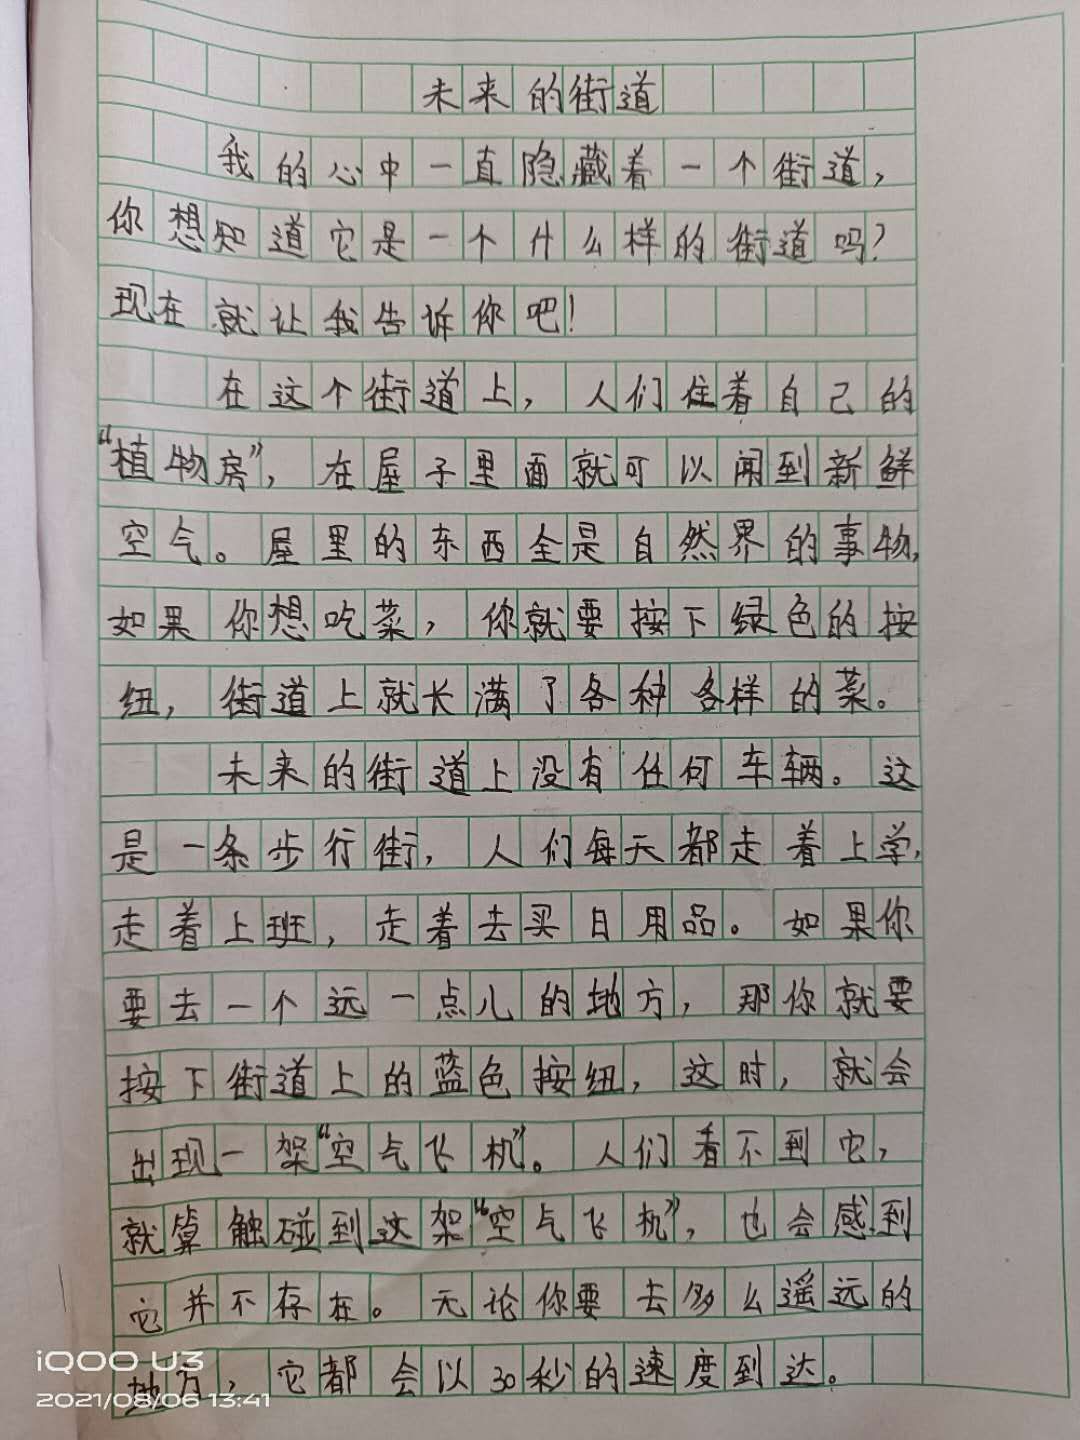 未来的街道
我的心中一直隐藏着一个街道,
你想知道它是一个什么样的街道吗?
现在就让我告诉你吧!
在这个街道上,人们住着自己的
“植物房”,在屋子里面就可以闻到新鲜
空气。屋里的东西全是自然界的事物,
如果你想吃菜,你就要按下绿色的按
纽,街道上就长满了各种各样的菜。
未来的街道上没有任何车辆。这
是一条步行街,人们每天都走着上学,
走着上班,走着去买日用品。如果你
要去一个远一点儿的地方,那你就要
按下街道上的蓝色按纽,这时,就会
出现一架“空气飞机”。人们看不到它,
就算触碰到这架“空气飞机”,也会感到
它并不存在。无论你要去多么遥远的
地方,它都会以30秒的速度到达。
iQOO U3
2021/08/06 13:41